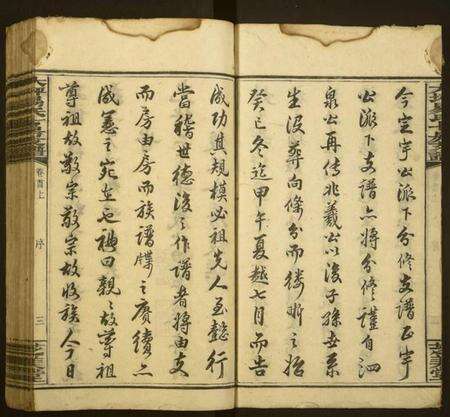 今宣宇公派下分修支譜正宇
公派下支譜亦將分修謹自泗
泉公再傳兆羲公以後子孫世系
生沒葬向條分而縷晰之始
癸巳冬迄甲午夏越七月而告
成功其規模必祖先人至懿行
當稽世德後之作譜者將由支
而房由房而族譜牒之賡續亦
成憲之宛在也禮曰親々故尊祖
尊祖故敬宗敬宗故收族今日
卷首上
序
三